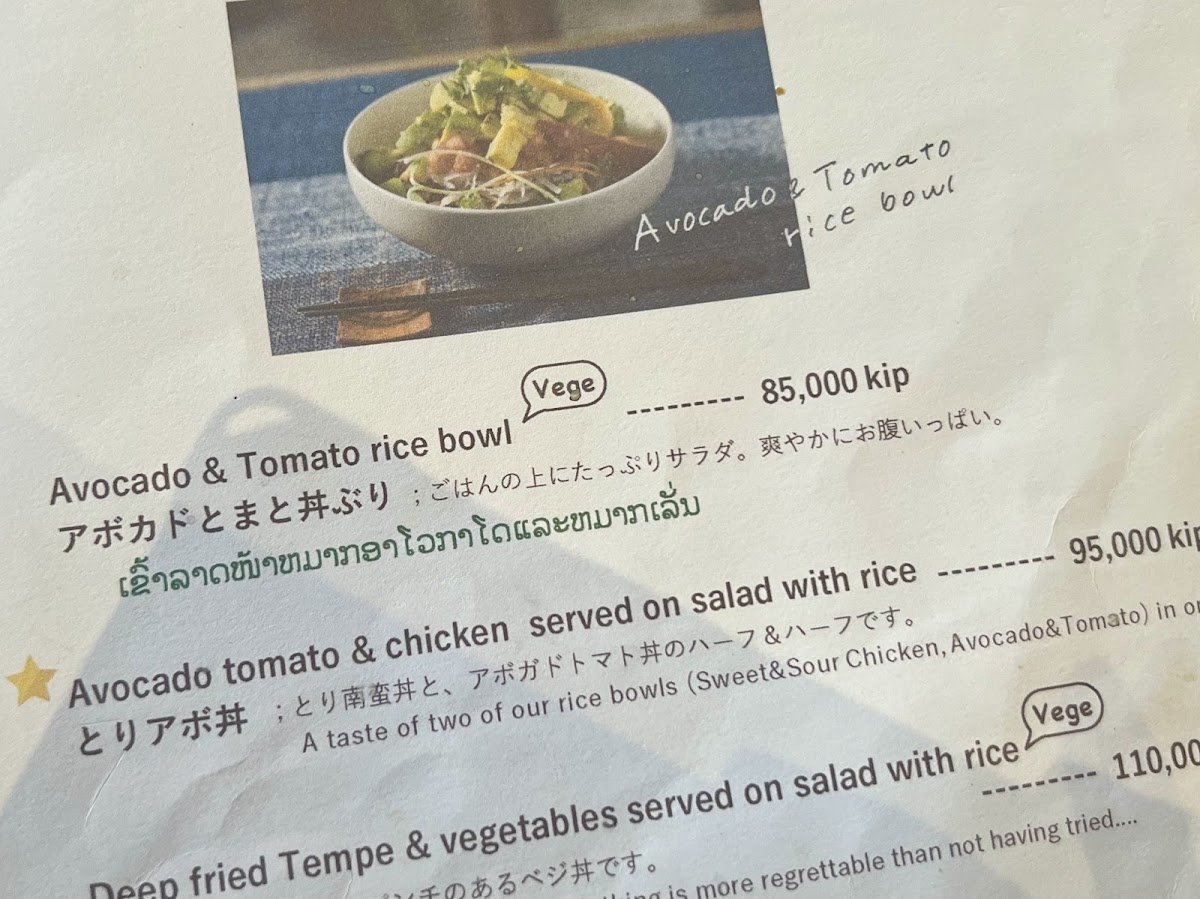 Avocado & Tomato
rice bowl
Avocado & Tomato rice bowl Vege --------- 85,000 kip
アボカドとまと丼ぶり ；ごはんの上にたっぷりサラダ。爽やかにお腹いっぱい。
ເຂົ້າລາດໜ້າຫມາກອາໂວກາໂດແລະຫມາກເລັ່ນ
Avocado tomato & chicken served on salad with rice --------- 95,000 kip
とりアボ丼 ；とり南蛮丼と、アボガドトマト丼のハーフ＆ハーフです。
A taste of two of our rice bowls (Sweet&Sour Chicken, Avocado&Tomato) in
Deep fried Tempe & vegetables served on salad with rice Vege
--------- 110,00
のあるベジ丼です。
is more regrettable than not having tried....